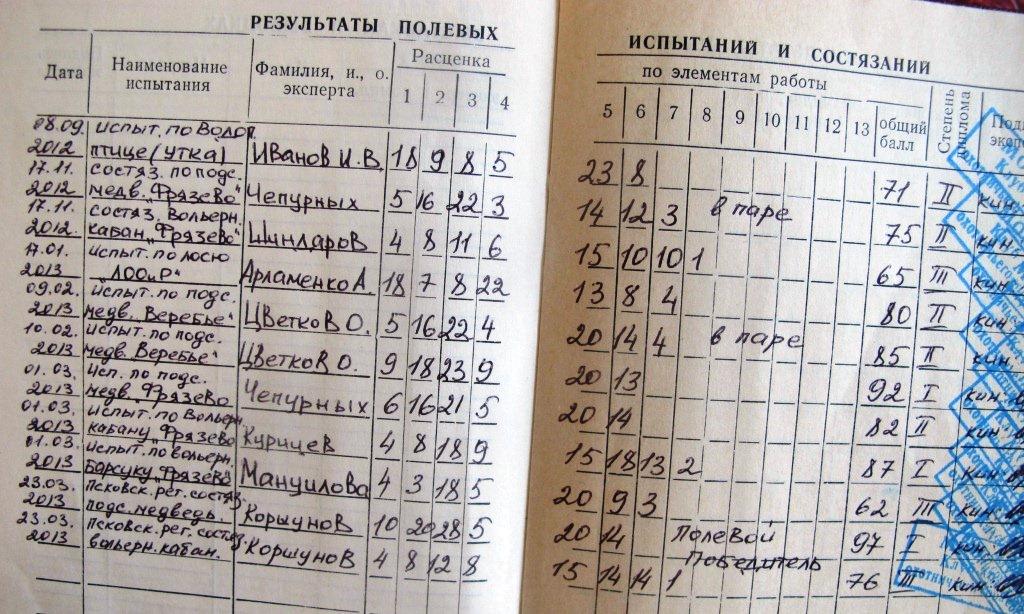 РЕЗУЛЬТАТЫ ПОЛЕВЫХ
Дата
Наименование испытания
Фамилия, и., о. эксперта
Расценка
1 2 3 4
08.09. испыт. по водоп.
2012 птице (утка) Иванов И. В. 18 9 8 5
17.11. состяз. по подс.
2012 медв. "Фрязево" Чепурных 5 16 22 3
17.11. состяз. вольерн.
2012 кабан "Фрязево" Шиндаров 4 8 11 6
17.01. испыт. по лосю
2013 "ЛООиР" Арламенко А. 18 7 8 22
09.02. испыт. по подс.
2013 медв. Веребье" Цветков О. 5 16 22 4
10.02. испыт. по подс.
2013 медв. Веребье" Цветков О. 9 18 23 9
01.03. исп. по подс.
2013 медв. Фрязево Чепурных 6 16 21 5
01.03. испыт. по вольерн
2013 кабану "Фрязево Курицев 4 8 18 9
01.03. испыт. по вольерн.
2013 барсуку "Фрязево" Мануилова 4 3 18 5
23.03. Псковск. рег. состяз.
2013 подс. медведь. Коршунов 10 20 28 5
23.03. Псковск. рег. состяз.
2013 вольерн. кабан. Коршунов 4 8 12 8
ИСПЫТАНИЙ И СОСТЯЗАНИЙ
по элементам работы
5 6 7 8 9 10 11 12 13 общий балл
Степень диплома
23 8 71 II
14 12 3 в паре 75 II
15 10 10 1 65 III
13 8 4 80 II
20 14 4 в паре 85 II
20 13 92 I
20 14 82 II
15 18 13 2 87 I
20 9 3 62 III
20 14 Полевой 97 I
Победитель
15 14 14 1 76 III